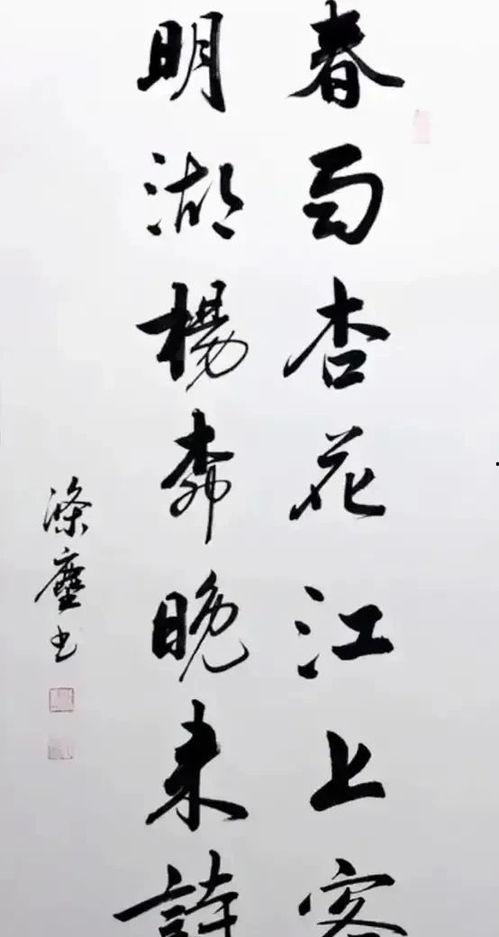 春雨杏花江上客
明湖楊柳晚来詩
滌塵书